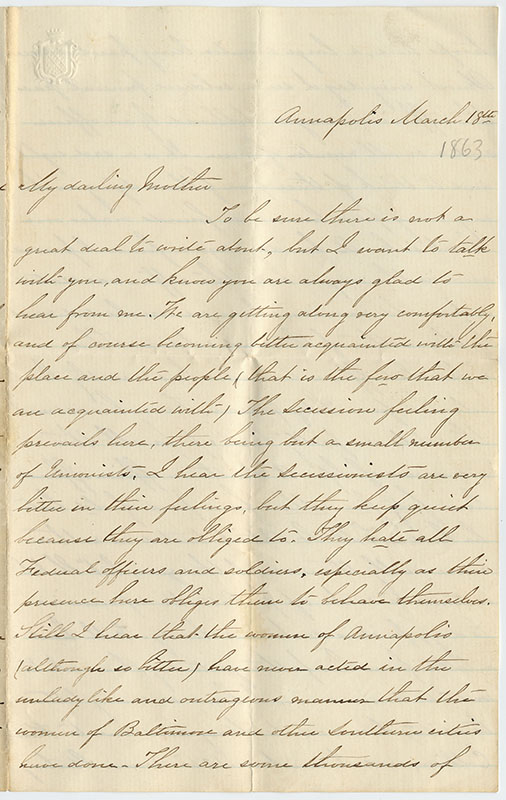 Annapolis March 18th
1863
My darling Mother
To be sure there is not a
great deal to write about, but I want to talk
with you, and know you are always glad to
hear from me. We are getting along very comfortably,
and of course becoming better acquainted with the
place and the people (that is the few that we
are acquainted with) The Secession feeling
prevails here, there being but a small number
of Unionists. I hear the Secessionists are very
bitter in their feelings, but they keep quiet
because they are obliged to. They hate all
Federal officers and soldiers, especially as their
presence here obliges them to behave themselves.
Still I hear that the women of Annapolis
(although so bitter) have never acted in the
unladylike and outrageous manner that the
women of Baltimore and other Southern cities
have done - There are some thousands of